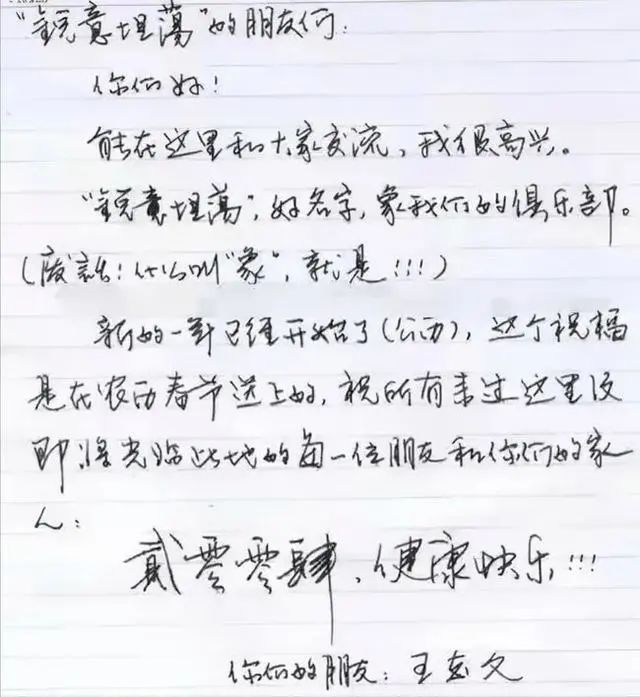 “锐意坦荡”的朋友们:
你们好!
能在这里和大家交流，我很高兴。
“锐意坦荡”，好名字，象我们的俱乐部。
(废话!什么叫“象”，就是!!!)
新的一年已经开始了(公历)，这个祝福
是在农历春节送上的，祝所有来过这里及
即将光临此地的每一位朋友和你们的家
人:
贰零零肆，健康快乐!!!
你们的朋友:王志文